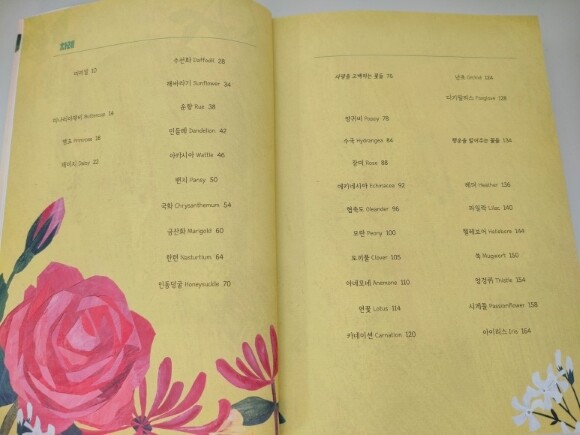 머리말 10
미나리아재비 Buttercup 14
앵초 Primrose 18
데이지 Daisy 22
수선화 Daffodil 28
해바라기 Sunflower 34
운향 Rue 38
민들레 Dandelion 42
아카시아 Wattle 46
팬지 Pansy 50
국화 Chrysanthemum 54
금잔화 Marigold 60
한련 Nasturtium 64
인동덩굴 Honeysuckle 70
사랑을 고백하는 꽃들 76
양귀비 Poppy 78
수국 Hydrangea 84
장미 Rose 88
에키네시아 Echinacea 92
협죽도 Oleander 96
모란 Peony 100
토끼풀 Clover 105
아네모네 Anemone 110
연꽃 Lotus 114
카네이션 Carnation 120
난초 Orchid 124
디기탈리스 Foxglove 128
행운을 빌어주는 꽃들 134
헤더 Heather 136
라일락 Lilac 140
헬레보어 Hellebore 144
쑥 Mugwort 150
엉겅퀴 Thistle 154
시계꽃 Passionflower 158
아이리스 Iris 164